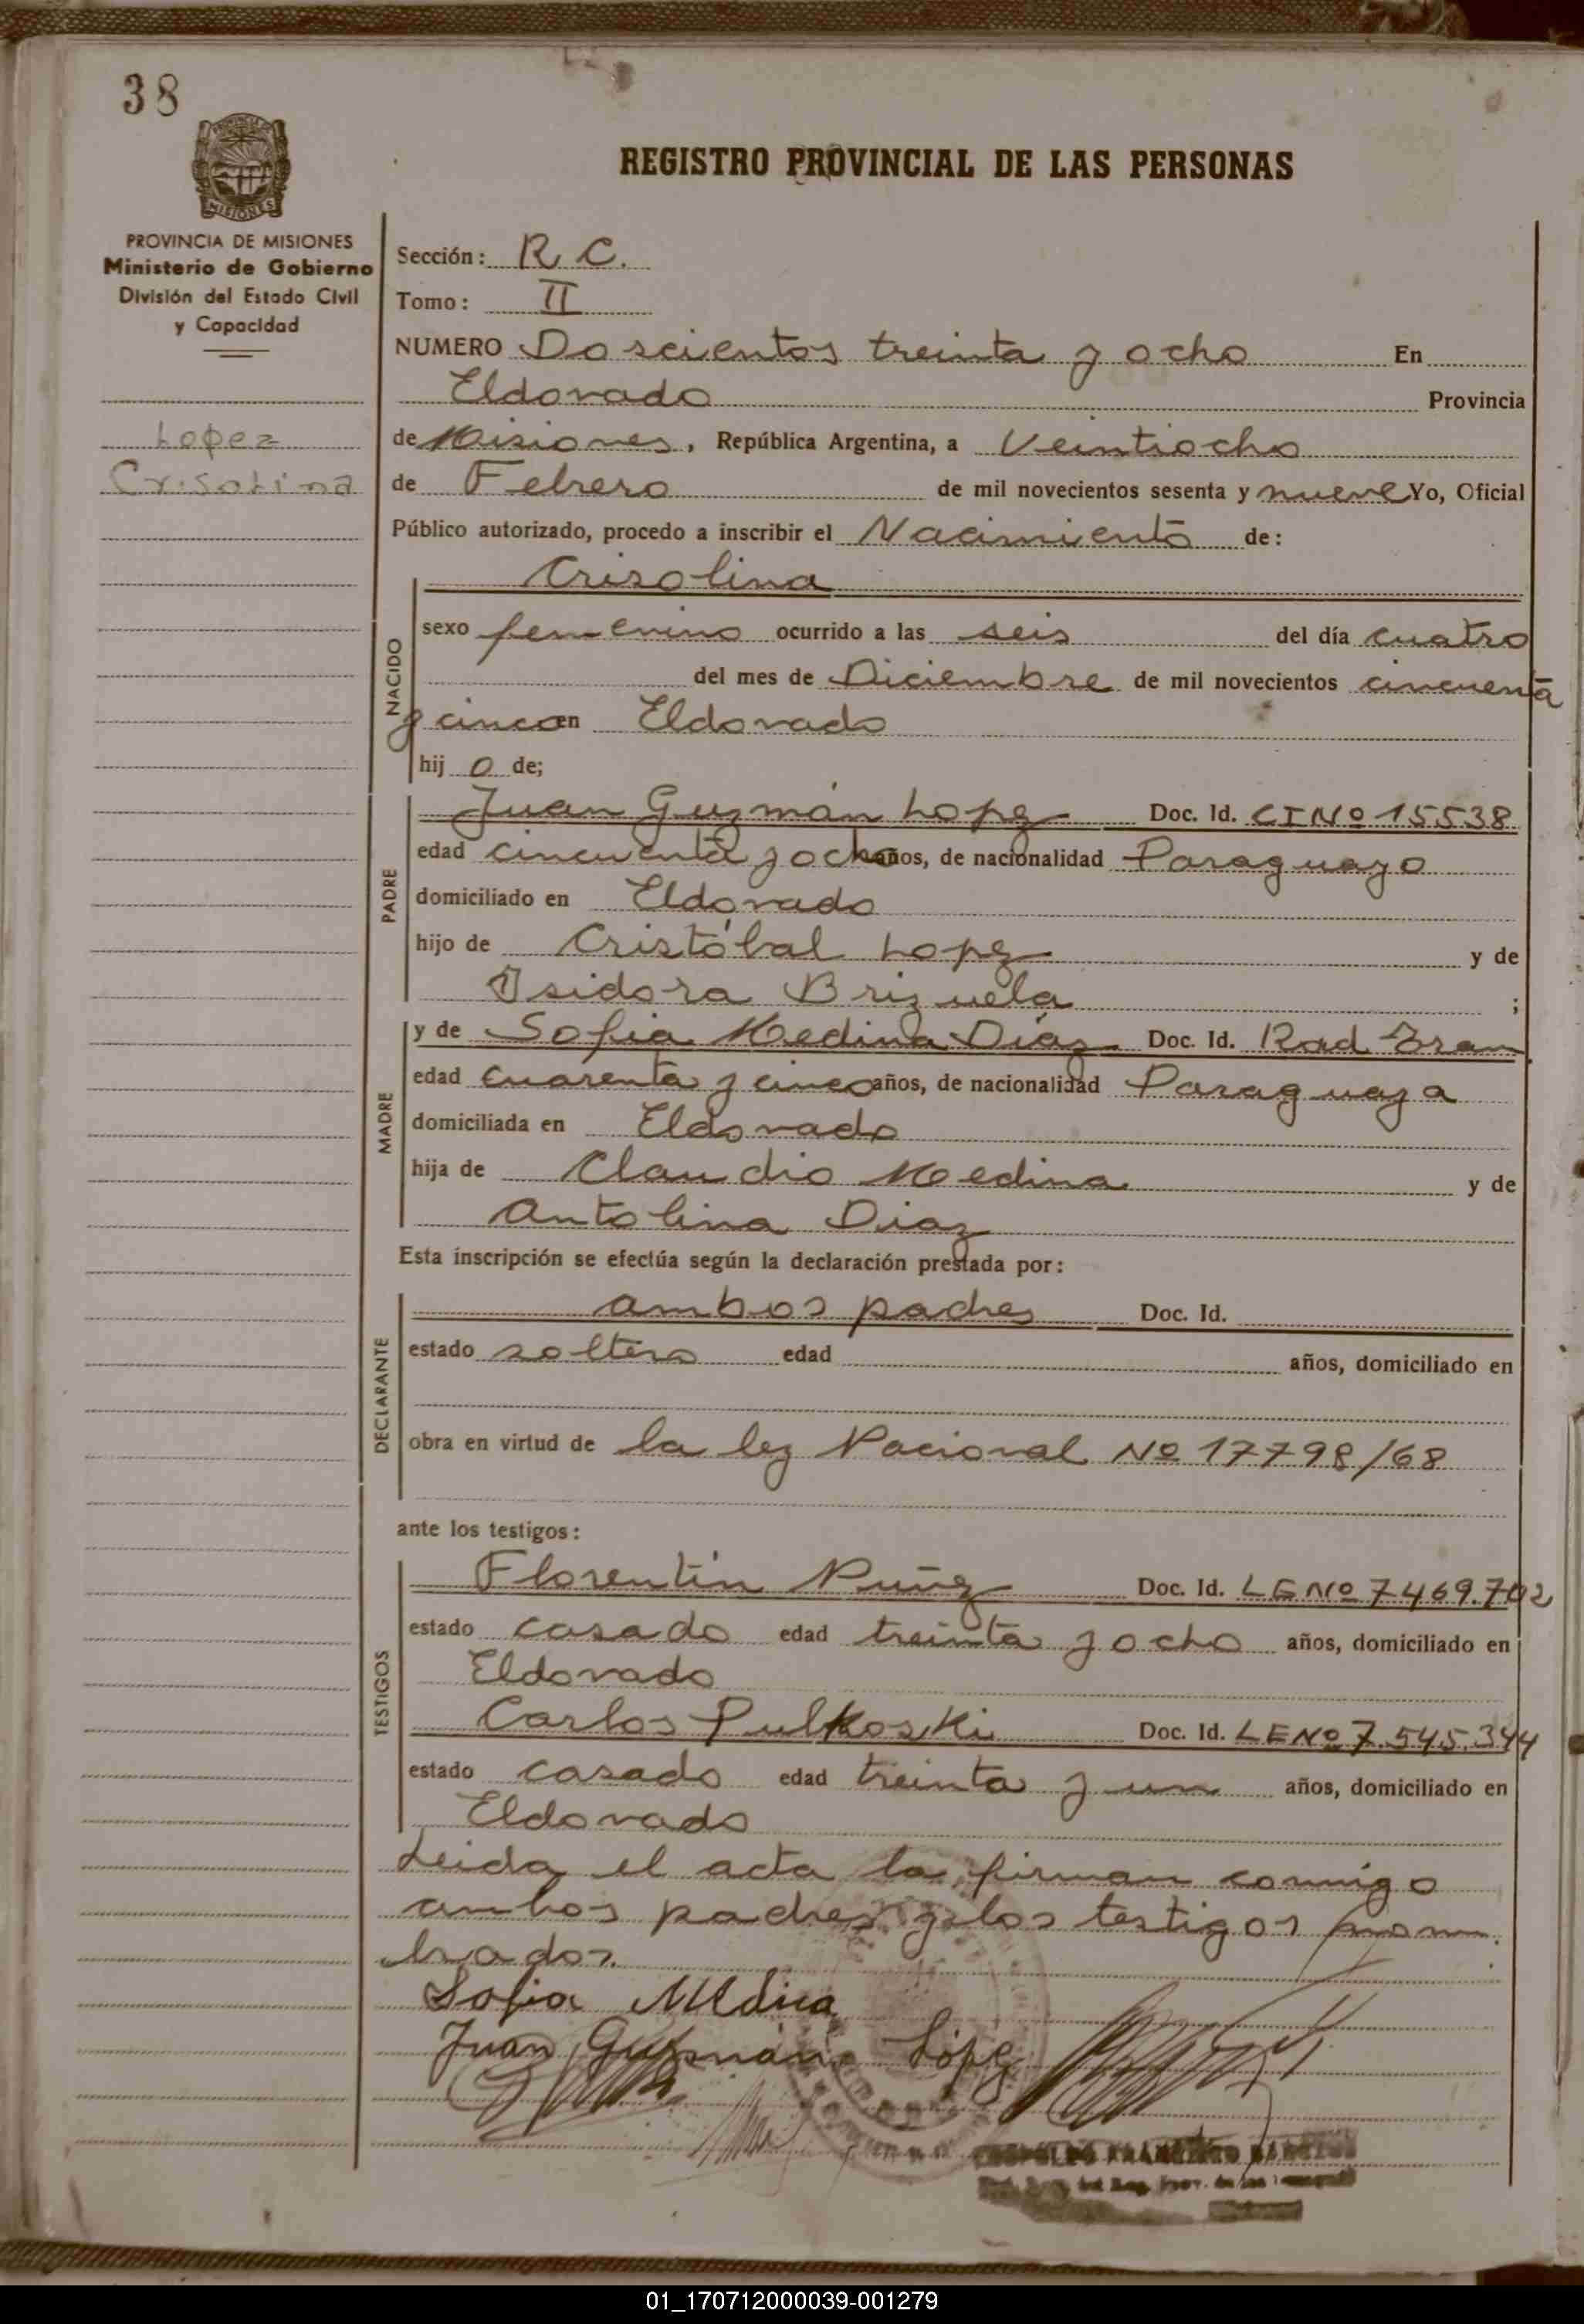 38
REGISTRO PROVINCIAL DE LAS PERSONAS
PROVINCIA DE MISIONES
Ministerio de Gobierno
División del Estado Civil
y Capacidad
Lopez
Crisolina
Sección: R C.
Tomo: II
NUMERO Doscientos treinta y ocho En
Eldorado Provincia
de Misiones, República Argentina, a Veintiocho
de Febrero de mil novecientos sesenta y nueve Yo, Oficial
Público autorizado, procedo a inscribir el Nacimiento de:
Crisolina
NACIDO
sexo femenino ocurrido a las seis del día cuatro
del mes de Diciembre de mil novecientos cincuenta
y cinco en Eldorado
hij o de;
PADRE
Juan Guzmán Lopez Doc. Id. CI Nº 15538
edad cincuenta y ocho años, de nacionalidad Paraguayo
domiciliado en Eldorado
hijo de Cristóbal Lopez y de
Isidora Brizuela ;
MADRE
y de Sofia Medina Diaz Doc. Id. Rad
edad cuarenta y cinco años, de nacionalidad Paraguaya
domiciliada en Eldorado
hija de Claudio Medina y de
Antolina Diaz
Esta inscripción se efectúa según la declaración prestada por:
DECLARANTE
ambos padres Doc. Id.
estado soltero edad años, domiciliado en
obra en virtud de la ley Nacional Nº 17798/68
ante los testigos:
TESTIGOS
Florentín Nuñez Doc. Id. LE Nº 7469.702
estado casado edad treinta y ocho años, domiciliado en
Eldorado
Carlos Pulkoski Doc. Id. LE Nº 7.545.344
estado casado edad treinta y un años, domiciliado en
Eldorado
Leida el acta la firman conmigo
ambos padres y los testigos nom
brados.
Sofia Medina
Juan Guzmán López
01_170712000039-001279